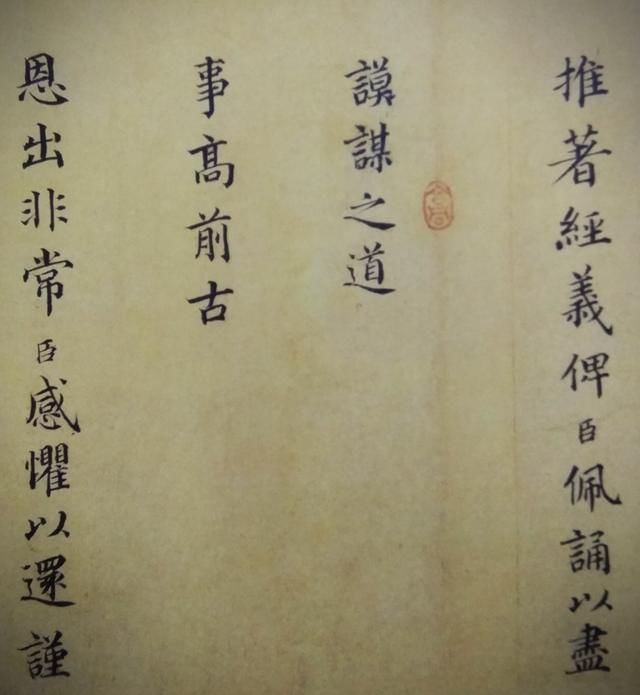 推著經義俾臣佩誦以盡
謨謀之道
事髙前古
恩出非常臣感懼以還謹